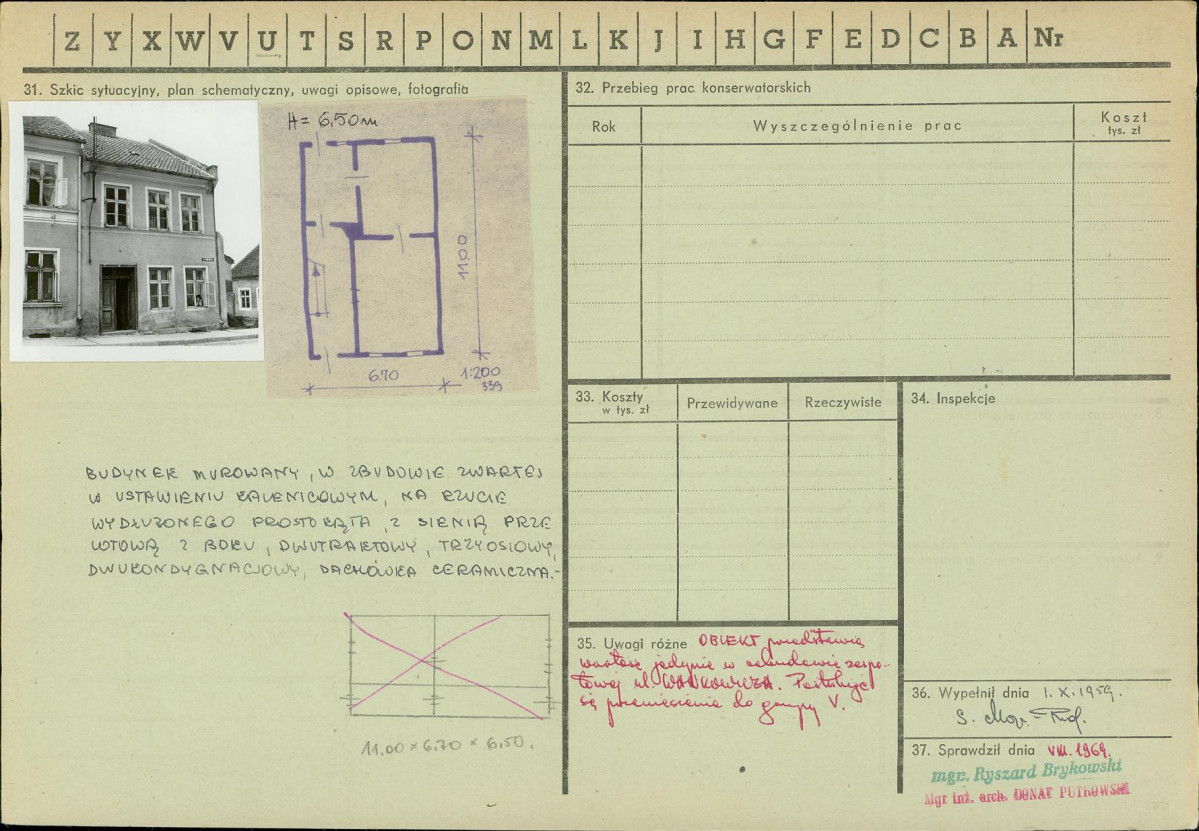 Z Y X W V U T S R P O N M L K J I H G F E D C B A Nr
31. Szkic sytuacyjny, plan schematyczny, uwagi opisowe, fotografia
H = 6,50m
11.00
6.70
1:200
339
BUDYNEK MUROWANY, W ZBUDOWIE ZWARTEJ
W USTAWIENIU KALENICOWYM, NA RZUCIE
WYDŁUŻONEGO PROSTOKĄTA, Z SIENIĄ PRZE
LOTOWĄ Z BOKU, DWUTRAKTOWY, TRZYOSIOWY,
DWUKONDYGNACJOWY, DACHÓWKA CERAMICZNA.-
11.00 × 6.70 × 6.50.
32. Przebieg prac konserwatorskich
Rok
Wyszczególnienie prac
Koszt
tys. zł
33. Koszty
w tys. zł
Przewidywane
Rzeczywiste
34. Inspekcje
35. Uwagi różne OBIEKT przedstawia
wartość jedynie w zabudowie zespo-
łowej ul. WAŃKOWICZA. Postuluje
się przeniesienie do grupy V.
36. Wypełnił dnia 1.X.1959.
37. Sprawdził dnia VIII.1969.
mgr. Ryszard Brykowski
Mgr inż. arch. DONAT PUTKOWSKI